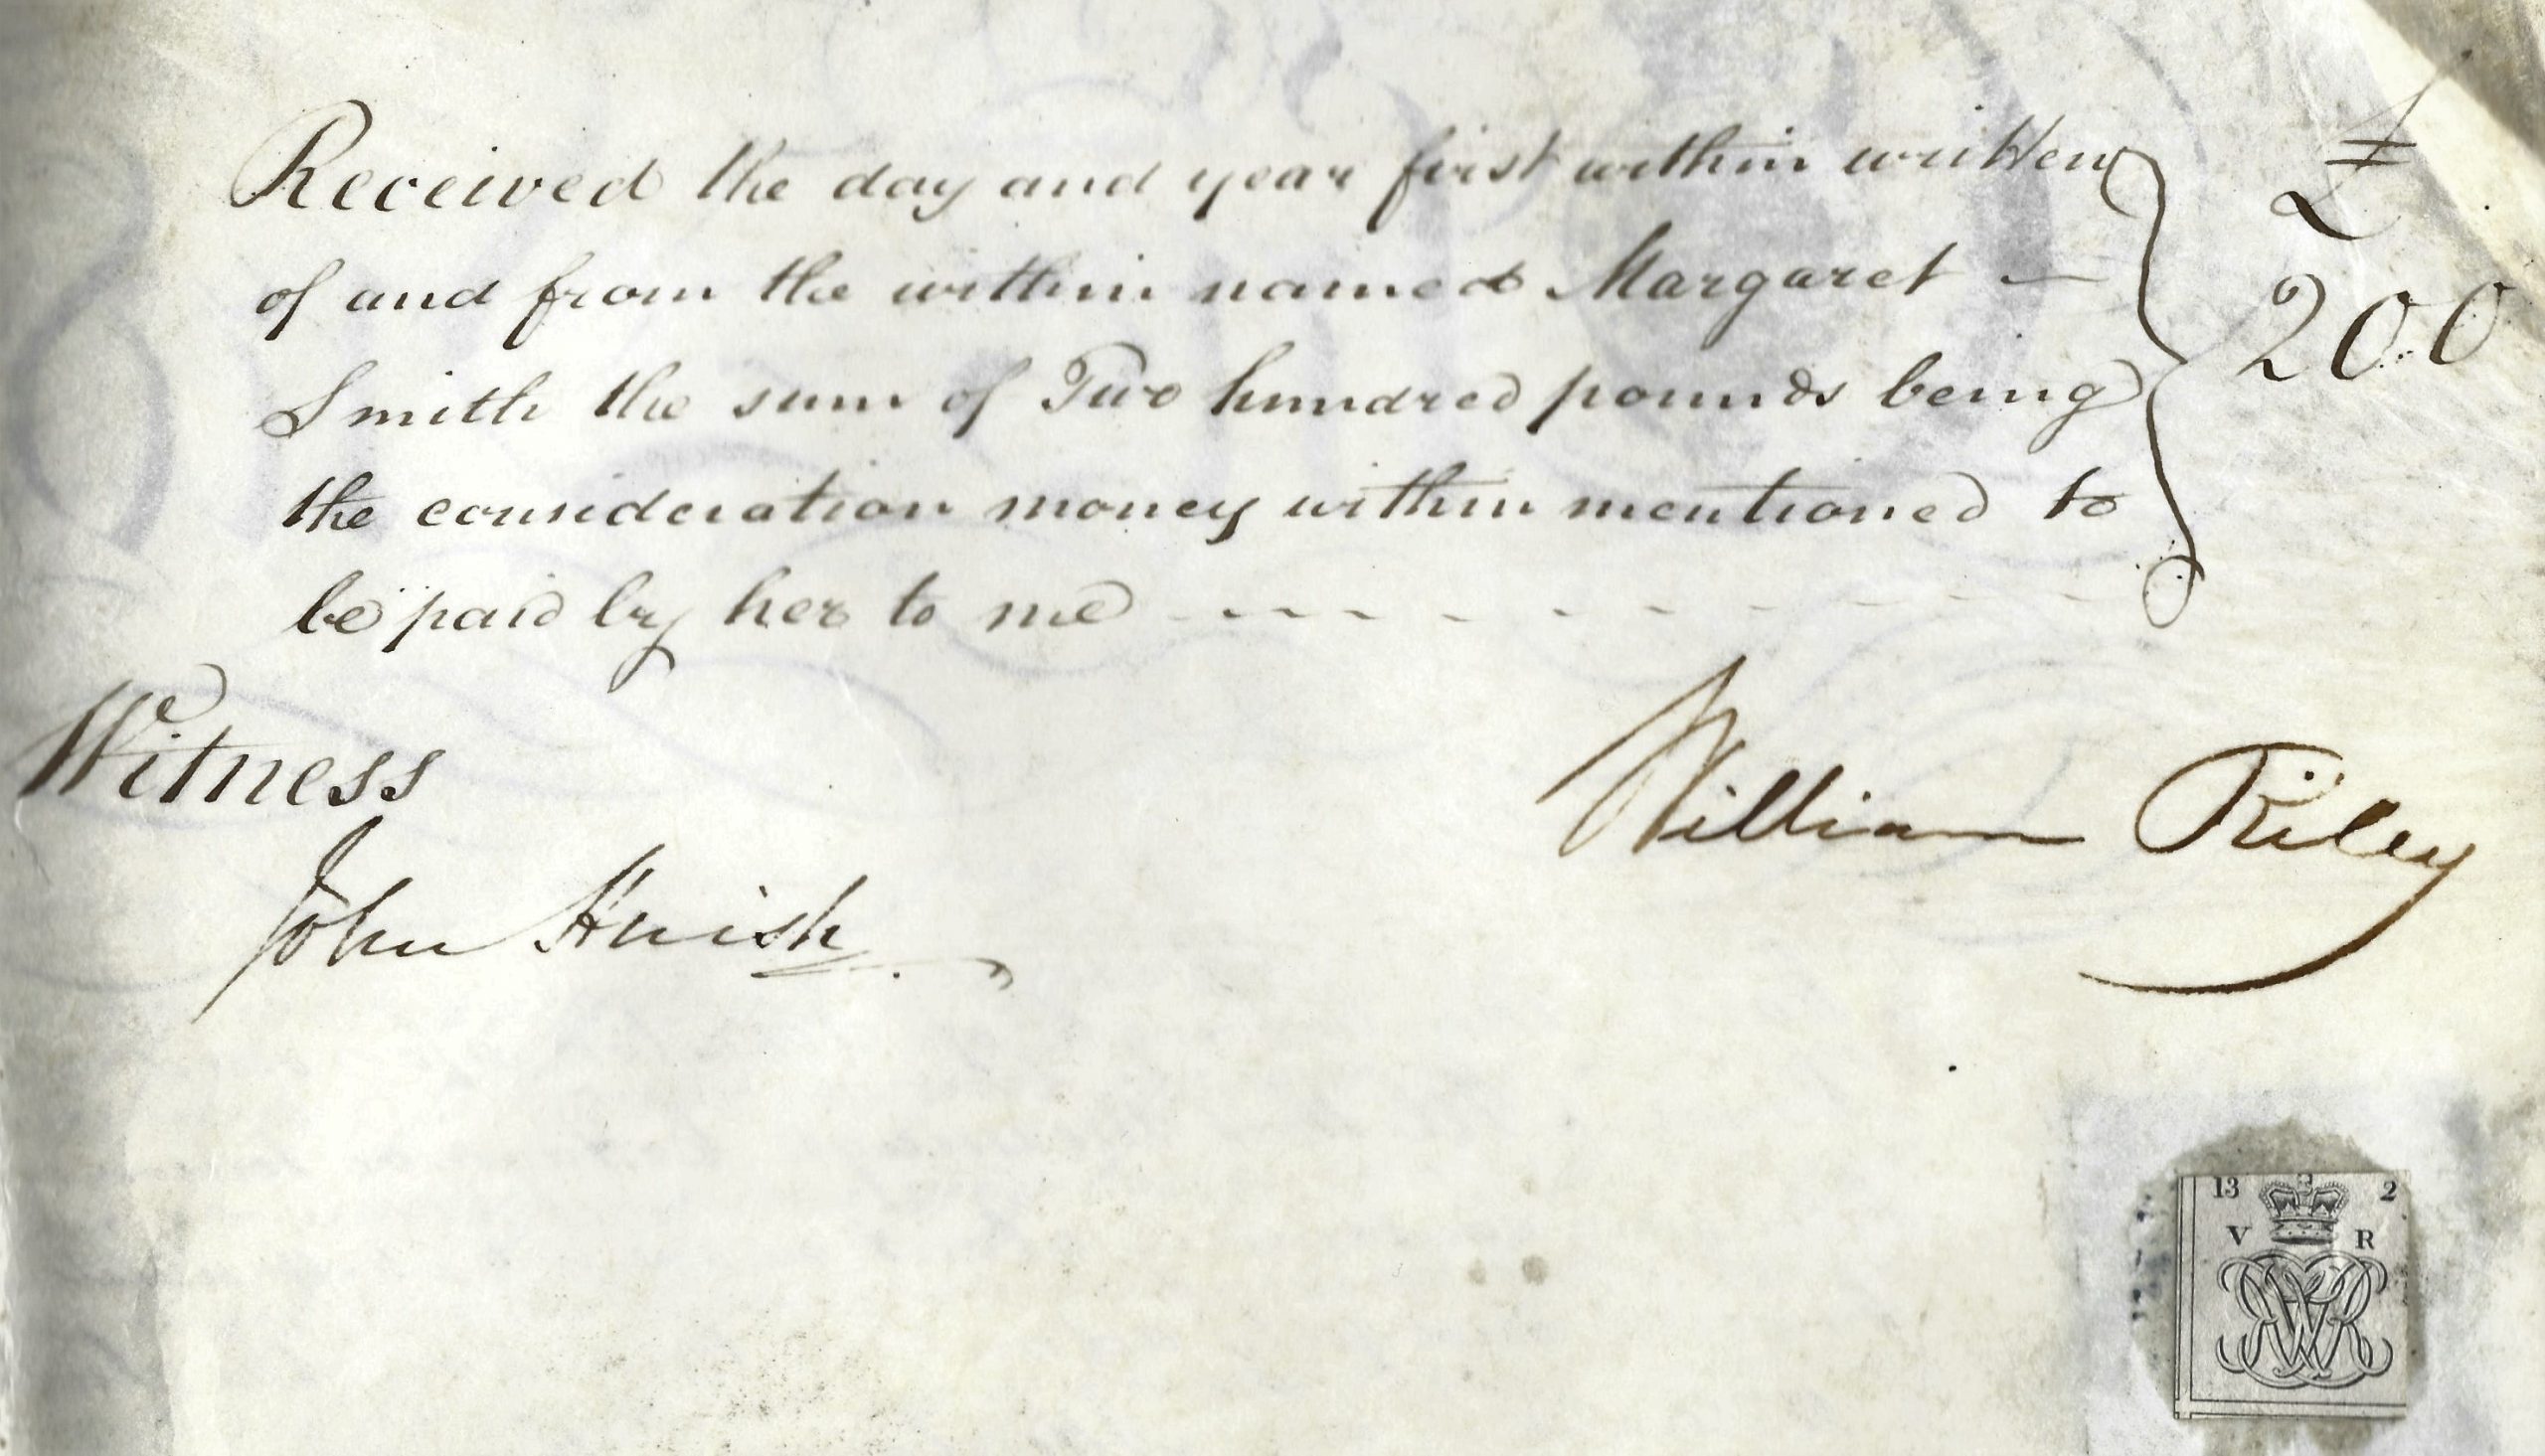 Received the day and year first within written
£
of and from the within named Margaret —
200
Smith the sum of Two hundred pounds being
the consideration money within mentioned to
be paid by her to me - - - - - - - - -
Witness
William Riley
John Huish
13 2
V R